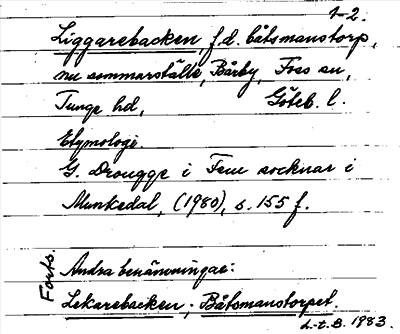 1-2.
Liggarebacken, f.d. båtsmanstorp,
nu sommarställe, Bårby, Foss sn,
Tunge hd, Göteb. l.
Etymologi.
G. Drougge i Fem socknar i
Munkedal, (1980), s. 155 f.
Forts.
Andra benämningar:
Lekarebacken; Båtsmanstorpet.
L-t.B. 1983.